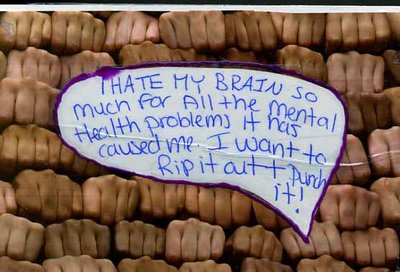 I HATE MY BRAIN SO
much For All the mental
Health problems it has
caused me I want to
Rip it out + punch
it!